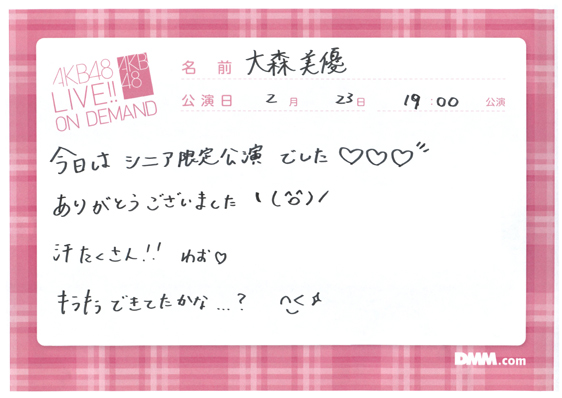 AKB48
LIVE!!
ON DEMAND
AKB
48
名前 大森美優
公演日 2月 23日 19:00 公演
今日は シニア限定公演 でした♡♡♡
ありがとうございました ヽ(^o^)ノ
汗たくさん!! わお♡
キラキラできてたかな…?
DMM.com